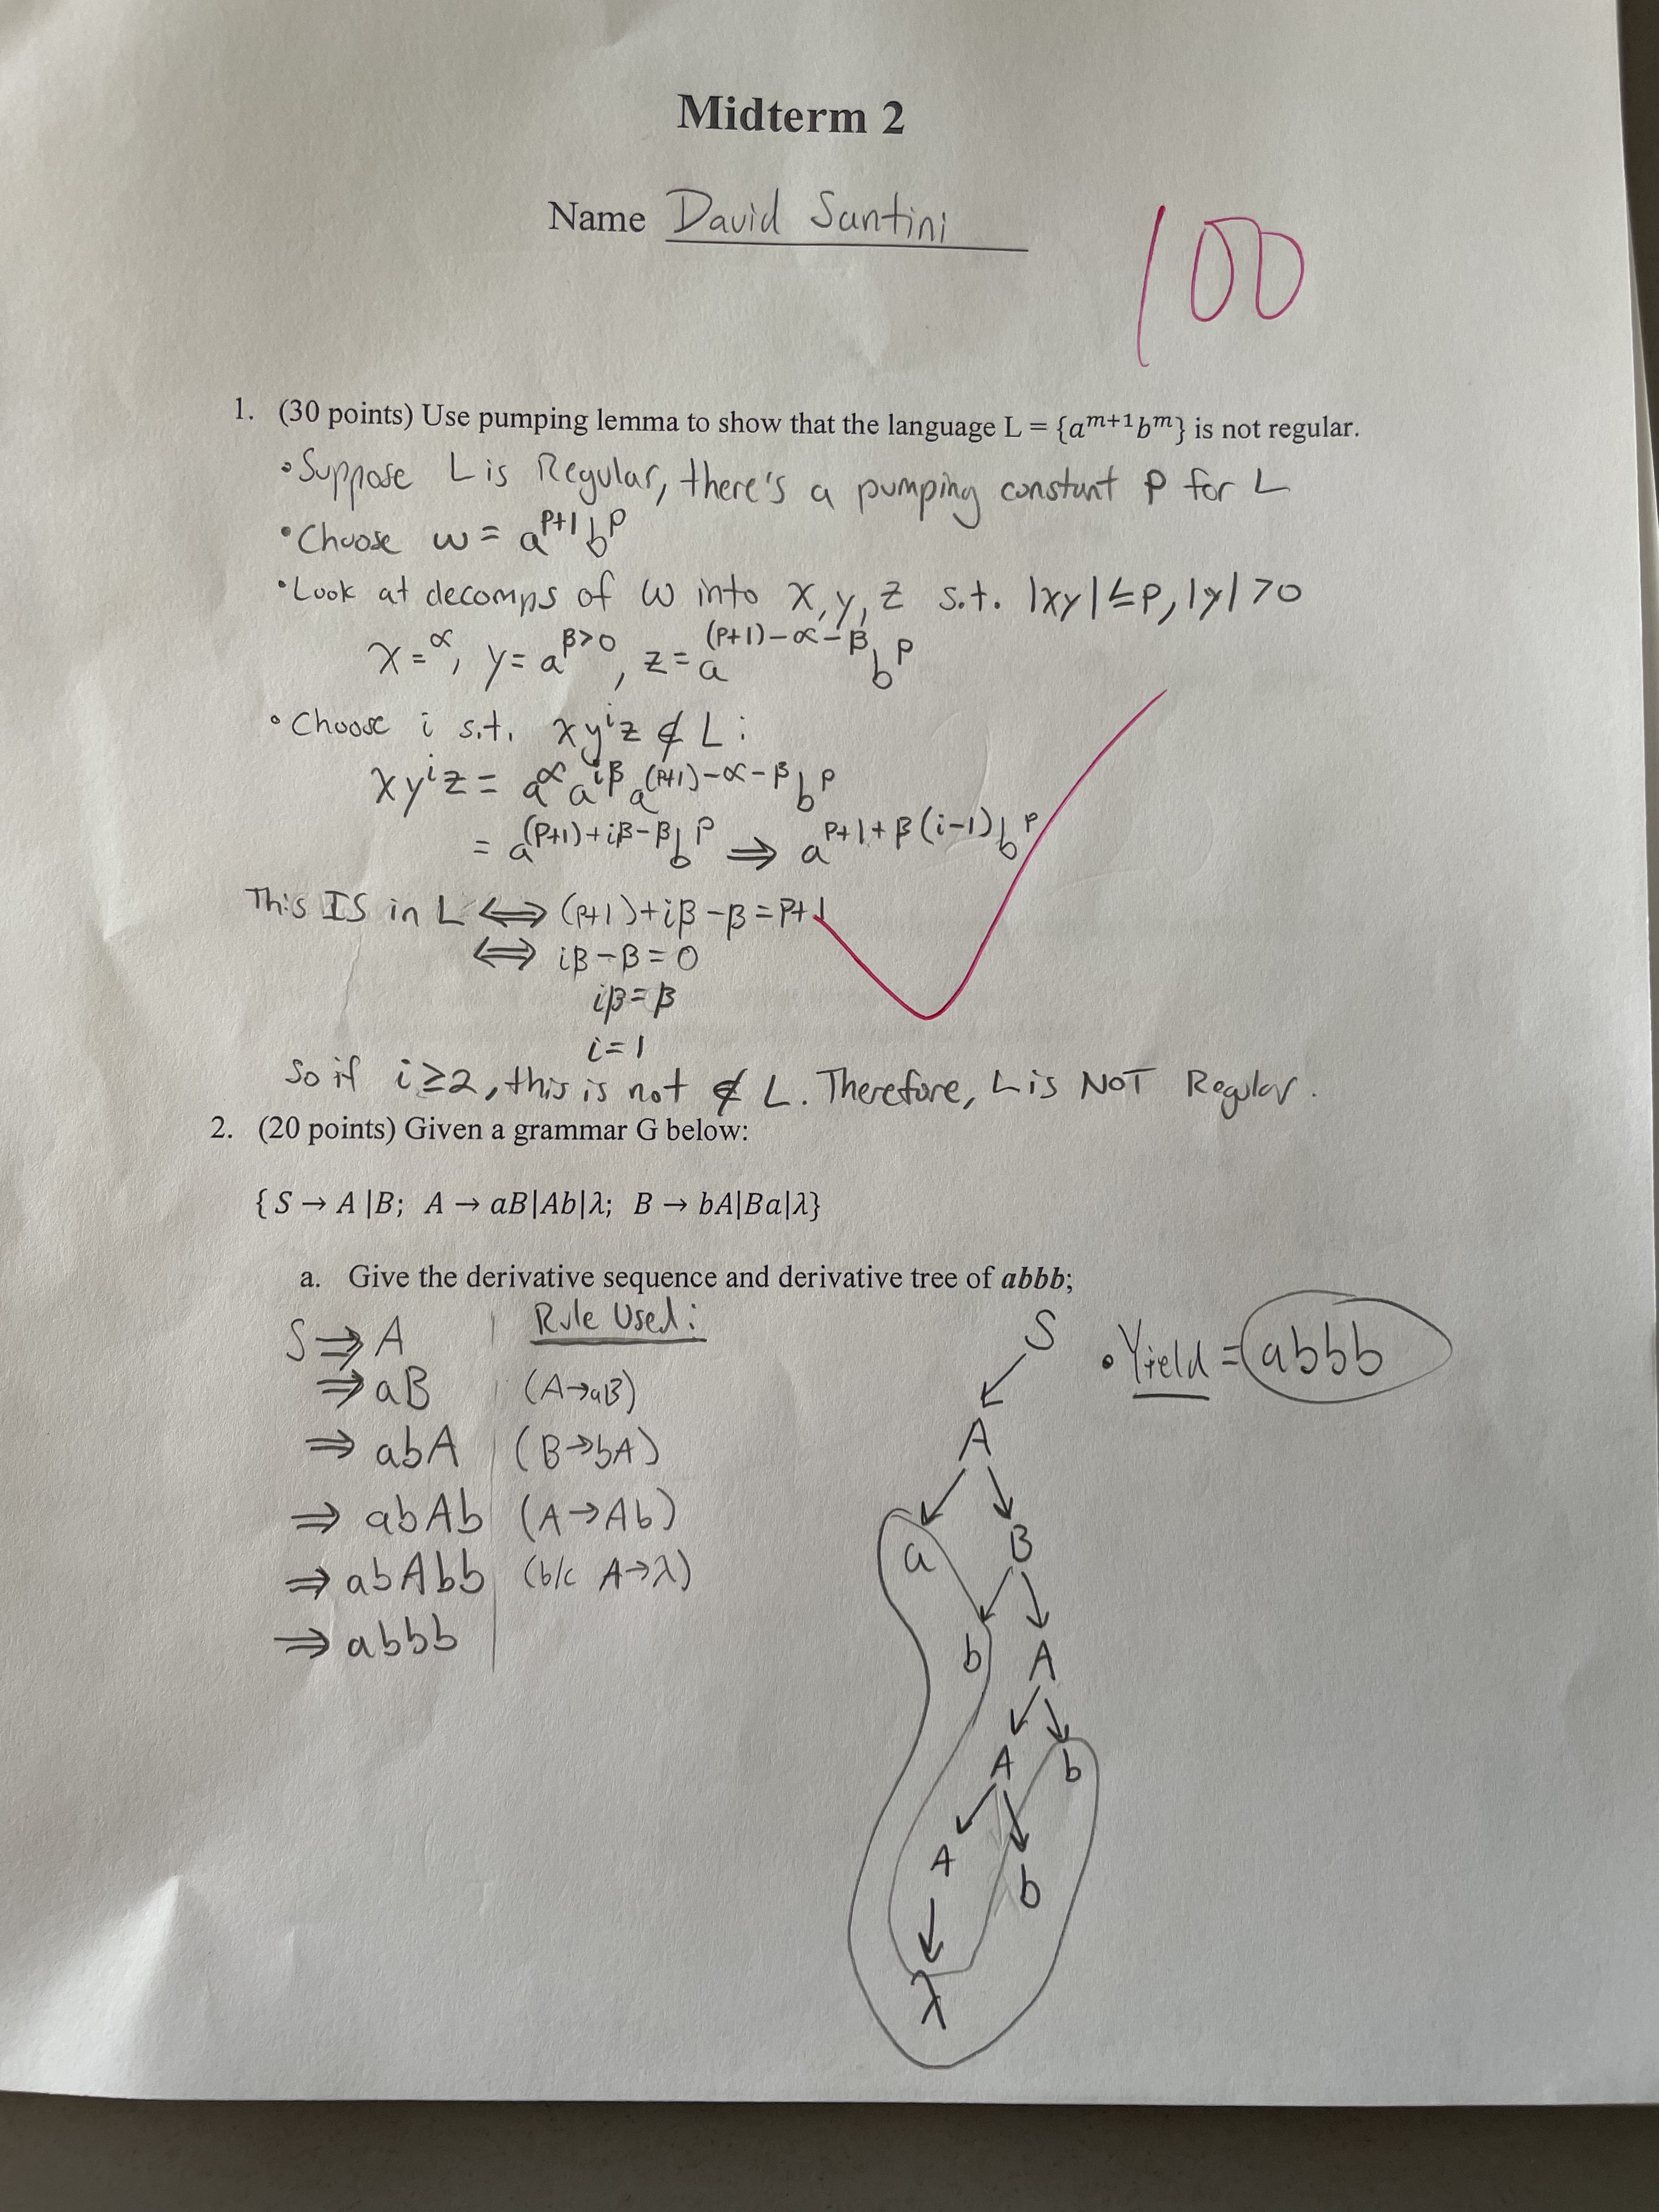 Midterm 2
Name David Santini
100
1. (30 points) Use pumping lemma to show that the language L = {a^{m+1}b^m} is not regular.
• Suppose L is Regular, there's a pumping constant P for L
• Choose w = a^{P+1}b^P
• Look at decomps of w into x, y, z s.t. |xy| ≤ P, |y| > 0
x = ^α, y = a^{β>0}, z = a^{(P+1)-α-β}b^P
• Choose i s.t. xy^iz ∉ L:
xy^iz = a^α a^{iβ} a^{(P+1)-α-β}b^P
= a^{(P+1)+iβ-β}b^P ⇒ a^{P+1+β(i-1)}b^P
This IS in L ⟺ (P+1)+iβ-β = P+1
⟺ iβ-β = 0
iβ = β
i = 1
So if i ≥ 2, this is not ∉ L. Therefore, L is NOT Regular.
2. (20 points) Given a grammar G below:
{ S → A |B; A → aB|Ab|λ; B → bA|Ba|λ}
a. Give the derivative sequence and derivative tree of abbb;
S ⇒ A Rule Used:
⇒ aB (A→aB)
⇒ abA (B→bA)
⇒ abAb (A→Ab)
⇒ abAbb (b/c A→λ)
⇒ abbb
S
A
a B
b A
A b
A b
λ
• Yield = abbb